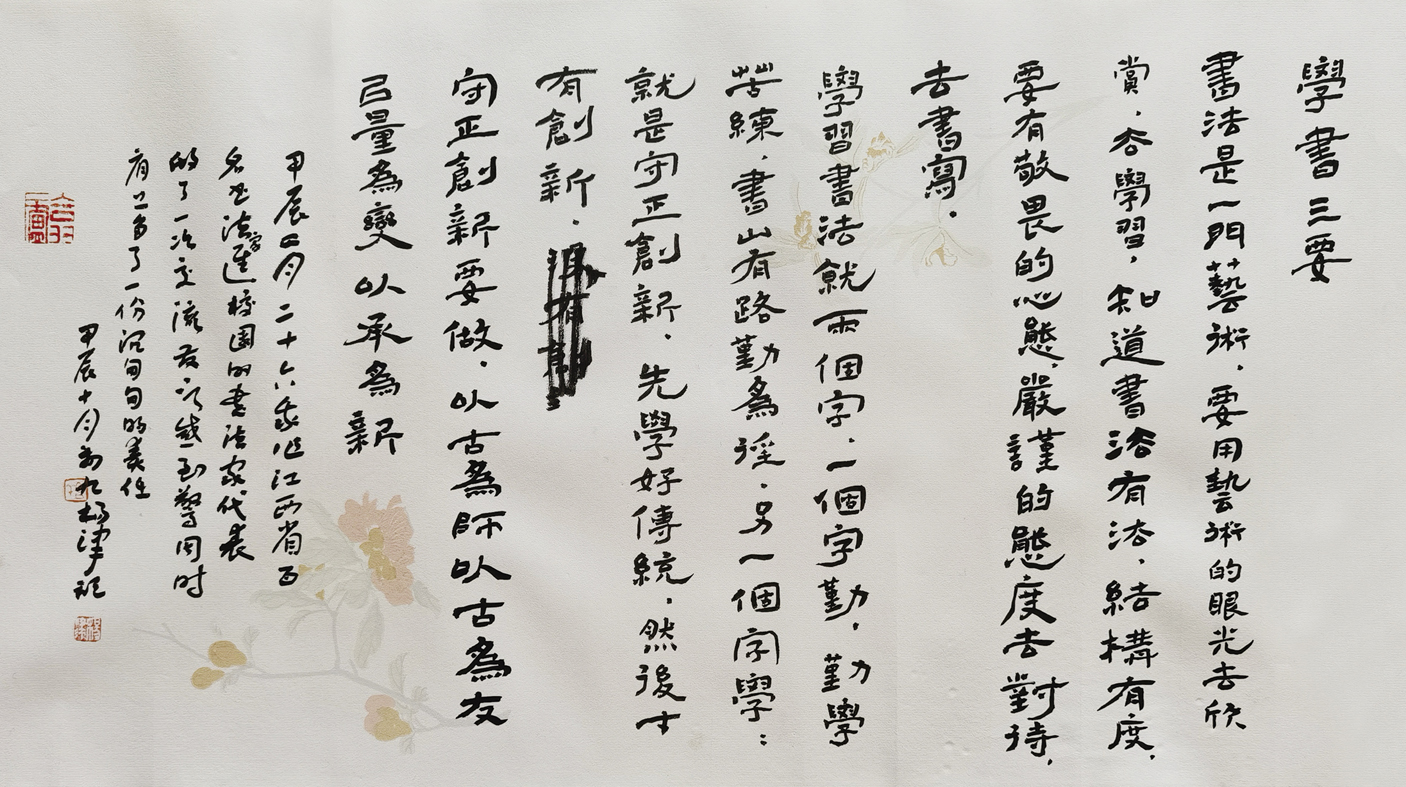 學書三要
書法是一門藝術，要用藝術的眼光去欣
賞，去學習，知道書法有法，結構有度，
要有敬畏的心態，嚴謹的態度去對待，
去書寫。
學習書法就兩個字，一個字勤，勤學
苦練，書山有路勤為徑，另一個字學：
就是守正創新，先學好傳統，然後才
有創新。
守正創新要做，以古為師以古為友
己量為變以承為新
甲辰四月二十六我作江西省百
名書法進校園的書法家代表
學
的了一次交流友誼感到驚同时
肩上多了一份沉甸甸的責任
甲辰十月